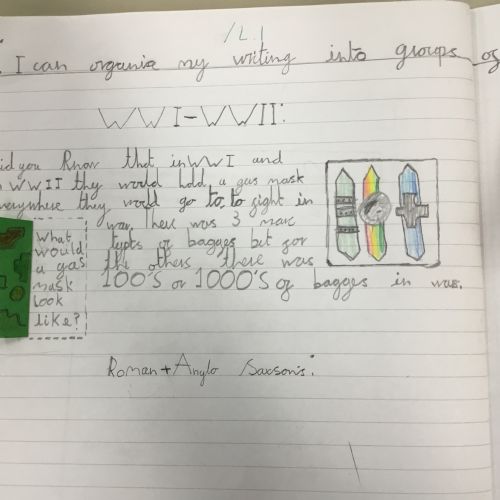 /2.1
I can organise my writing into groups of
WWI-WWII:
did you Know that in WWI and
WWII thy would hold a gas mask
everywhere they woud go to, to fight in
war. there was 3 marc
typts of bagges but for
the others there was
100's or 1000's of bagges in was.
What
would
a gas
mask
look
like?
Roman + Anglo Saxson's: